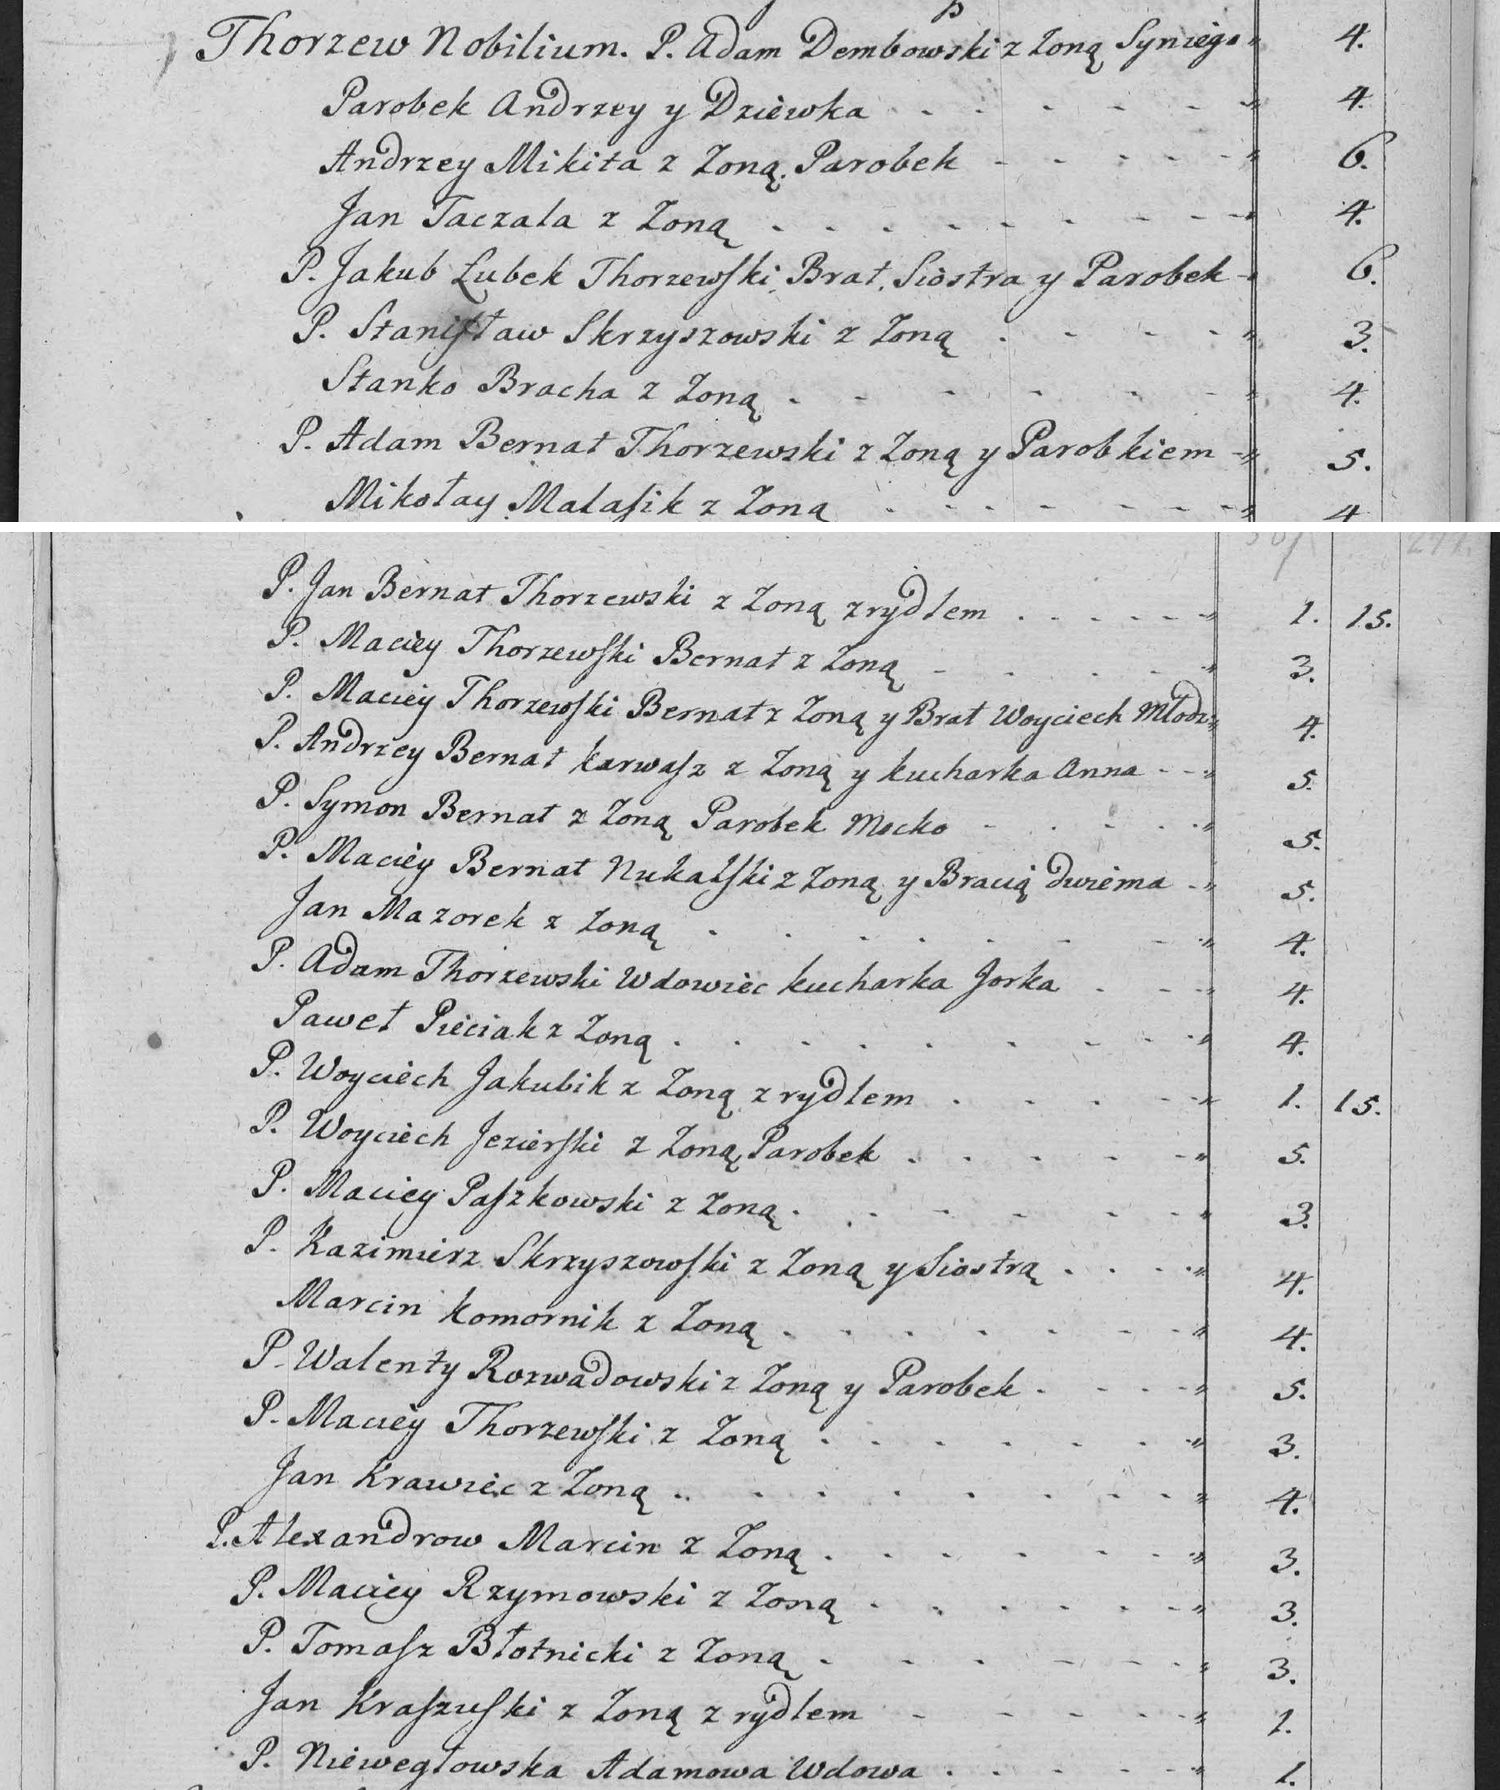 Thorzew Nobilium. P. Adam Dembowski z Zoną Syn iego " 4.
Parobek Andrzey y Dziewka . . . . . " 4.
Andrzey Mikita z Zoną. Parobek - - - - - " 6.
Jan Taczala z Zoną . . . . . . - - - " 4.
P. Jakub Lubek Thorzewski, Brat, Siostra y Parobek - " 6.
P. Stanisław Skrzyszowski z Zoną . . . . " 3.
Stanko Bracha z Zoną . . . . . . " 4.
P. Adam Bernat Thorzewski z Zoną y Parobkiem - " 5.
Mikołay Malasik z Zoną . . . . . . . " 4
P. Jan Bernat Thorzewski z Zoną z rydlem . . . . . " 1. 15.
P. Maciey Thorzewski Bernat z Zoną - . . . " 3.
P. Maciey Thorzewski Bernat z Zoną y Brat Woyciech Młodz: " 4.
P. Andrzey Bernat Karwasz z Zoną y kucharka Anna - - " 5.
P. Symon Bernat z Zoną Parobek Mocko - . . . " 5.
P. Maciey Bernat Nukalski z Zoną y Bracią dwiema - " 5.
Jan Mazorek z Zoną . . . . . . . - " 4.
P. Adam Thorzewski Wdowiec kucharka Jorka . . - " 4.
Paweł Pieciak z Zoną . . . . . . . . . " 4.
P. Woyciech Jakubik z Zoną z rydlem . . . . - " 1. 15.
P. Woyciech Jezierski z Zoną, Parobek . . . . . " 5.
P. Maciey Paszkowski z Zoną . . . . . . " 3.
P. Kazimierz Skrzyszowski z Zoną y Siostrą . . . . " 4.
Marcin Komornik z Zoną . . . . . . . " 4.
P. Walenty Rozwadowski z Zoną y Parobek . . . . " 5.
P. Maciey Thorzewski z Zoną . . . . . . . " 3.
Jan Krawiec z Zoną . . . . . . . . . " 4.
P. Alexandrow Marcin z Zoną . . . . . . . " 3.
P. Maciey Rzymowski z Zoną . . . . . . " 3.
P. Tomasz Błotnicki z Zoną . . . . . . . " 3.
Jan Kraszuski z Zoną z rydlem - - - - - " 1.
P. Niewegłowska Adamowa Wdowa . . . . . " 1.